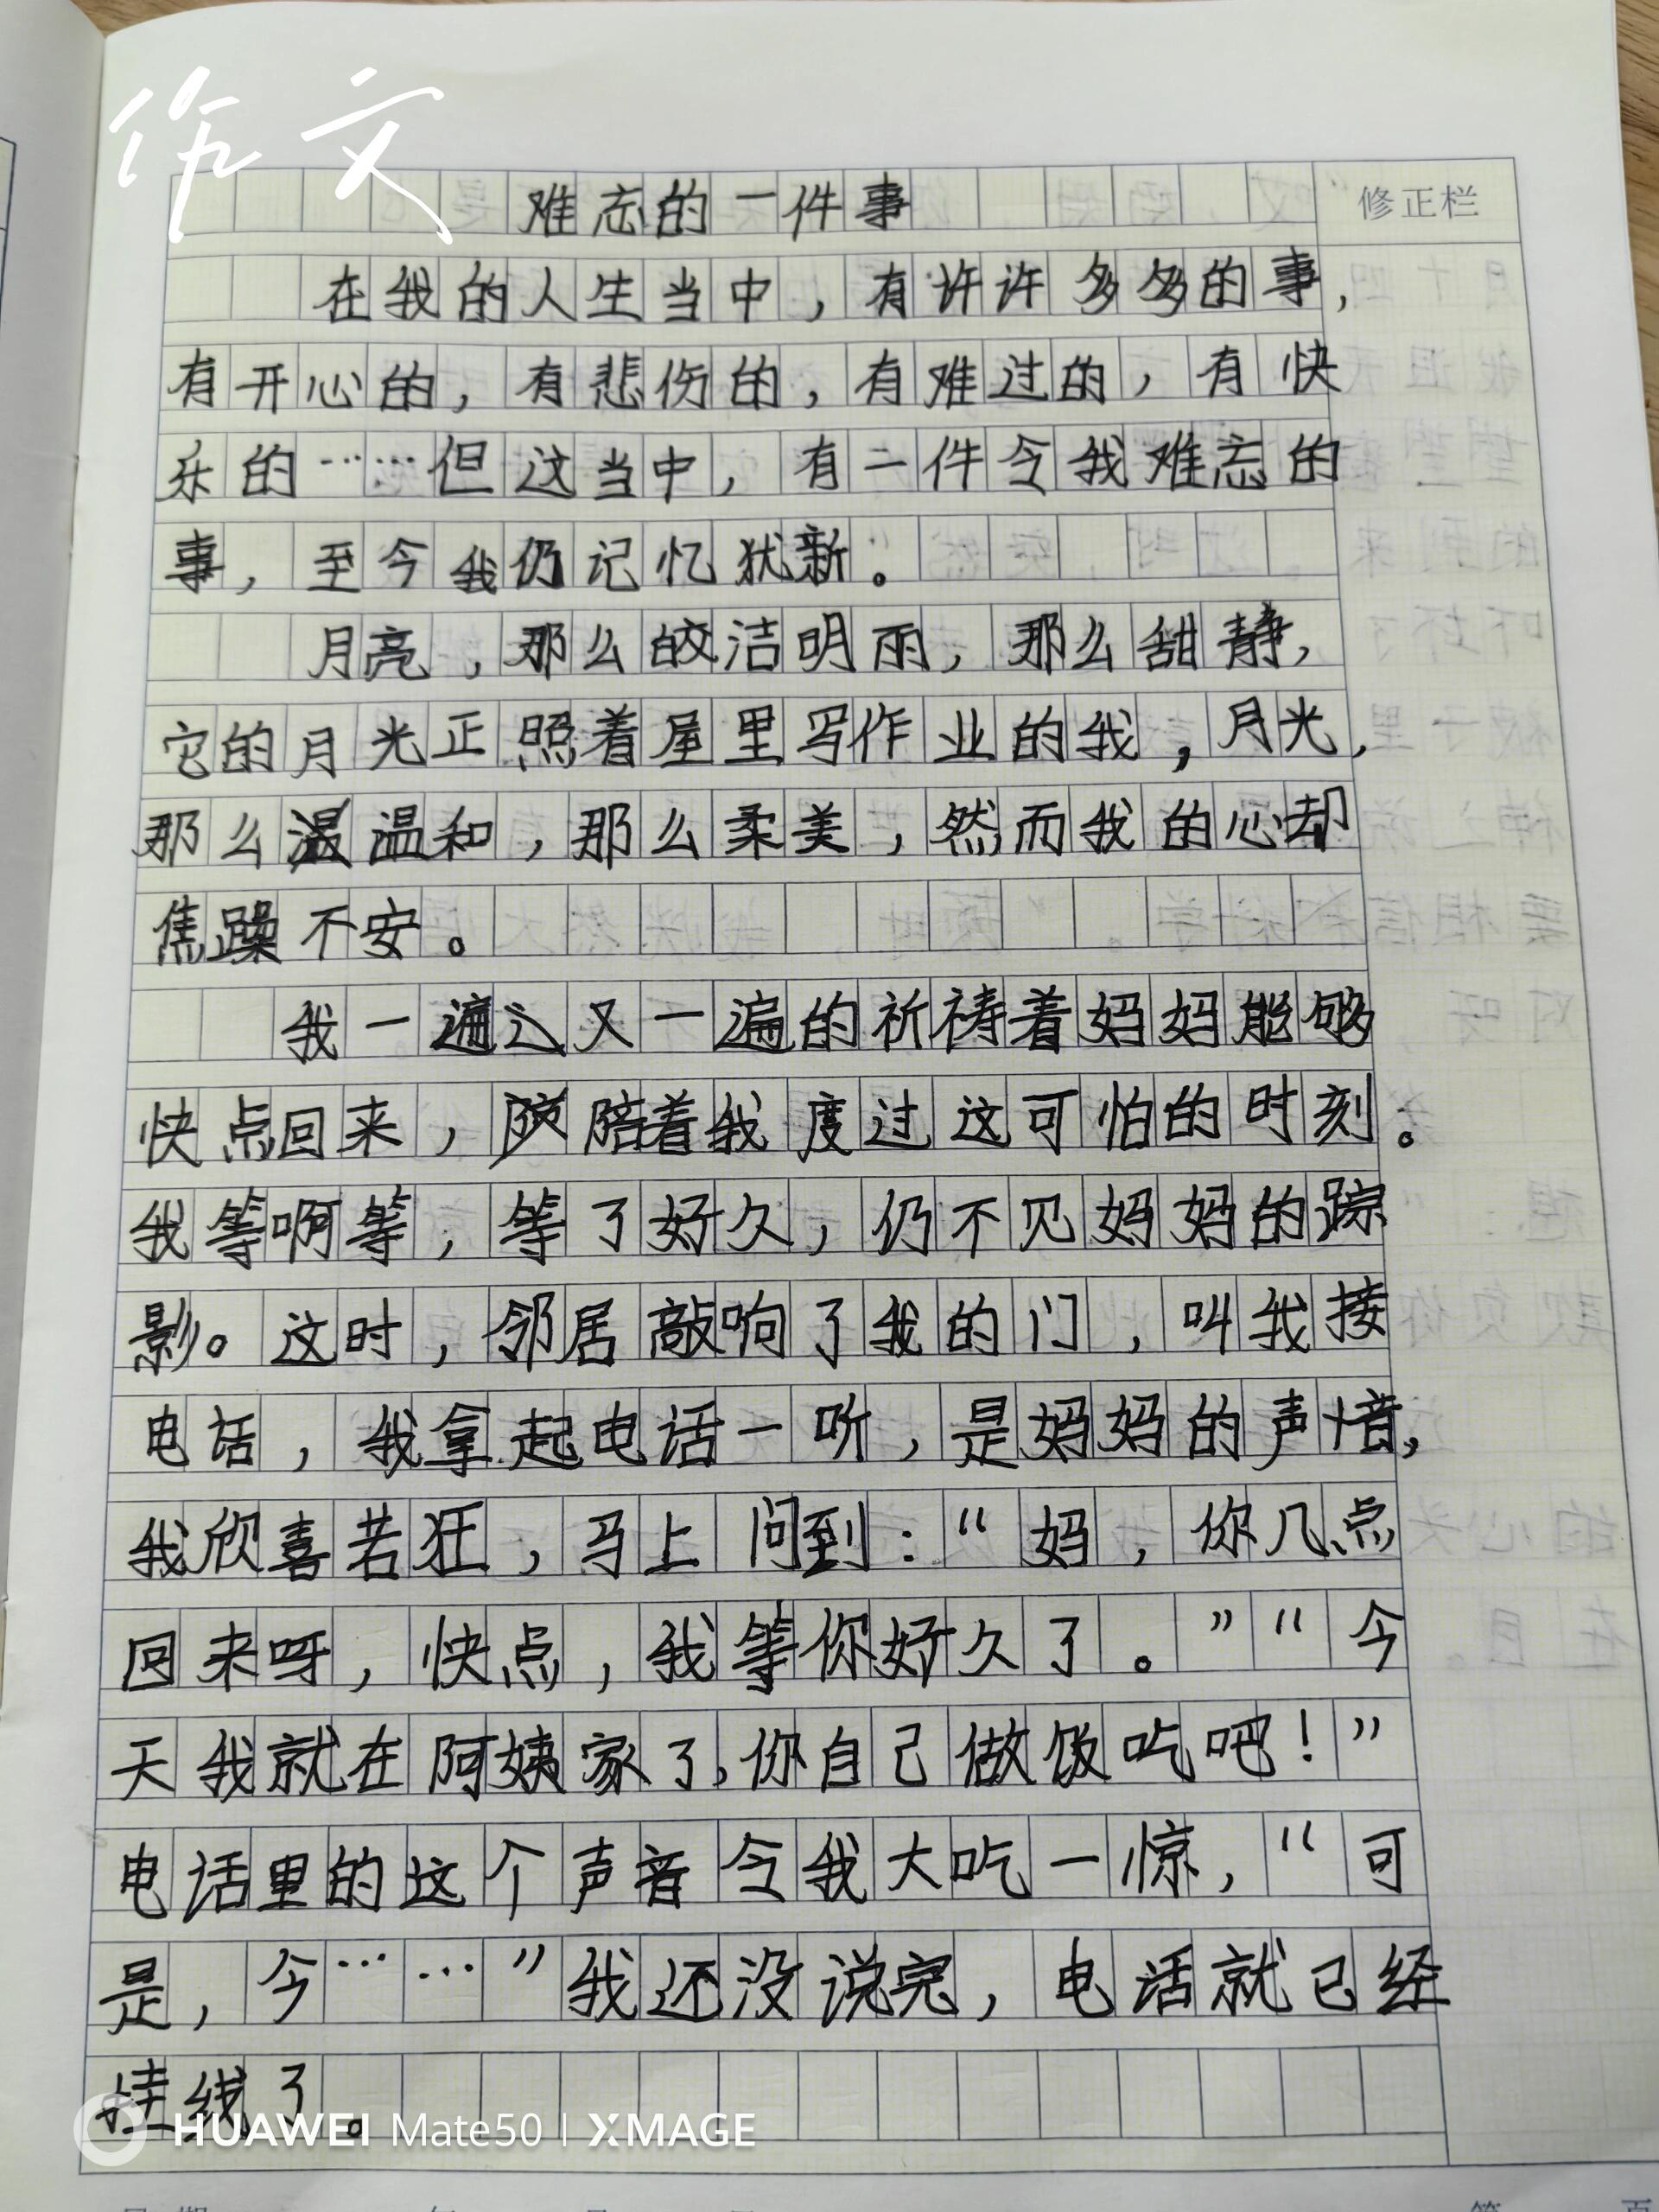 作文
难忘的一件事
修正栏
在我的人生当中，有许许多多的事，
有开心的，有悲伤的，有难过的，有快
乐的……但这当中，有一件令我难忘的
事，至今我仍记忆犹新。
月亮，那么皎洁明雨，那么甜静，
它的月光正照着屋里写作业的我，月光，
那么温和，那么柔美，然而我的心却
焦躁不安。
我一遍又一遍的祈祷着妈妈能够
快点回来，陪着我度过这可怕的时刻。
我等啊等，等了好久，仍不见妈妈的踪
影。这时，邻居敲响了我的门，叫我接
电话，我拿起电话一听，是妈妈的声音，
我欣喜若狂，马上问到：“妈，你几点
回来呀，快点，我等你好久了。”“今
天我就在阿姨家了，你自己做饭吃吧！”
电话里的这个声音令我大吃一惊，“可
是，今……”我还没说完，电话就已经
挂线了。
HUAWEI Mate50 | XMAGE